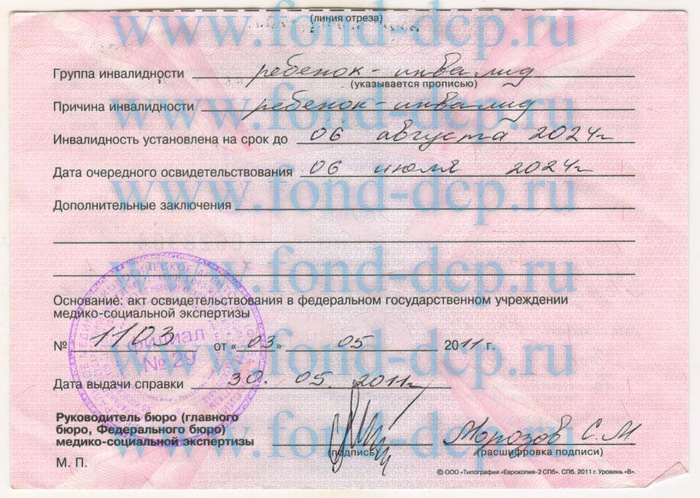 www.fond-dcp.ru
(линия отреза)
Группа инвалидности ребенок-инвалид
(указывается прописью)
www.fond-dcp.ru
Причина инвалидности ребенок-инвалид
Инвалидность установлена на срок до 06 августа 2024г
Дата очередного освидетельствования 06 июля 2024г
www.fond-dcp.ru
Дополнительные заключения
www.fond-dcp.ru
Основание: акт освидетельствования в федеральном государственном учреждении
медико-социальной экспертизы
№ 1103 от «03» 05 2011 г.
филиал
№ 29
www.fond-dcp.ru
Дата выдачи справки 30. 05. 2011г
Руководитель бюро (главного
бюро, Федерального бюро)
медико-социальной экспертизы Морозов С.М
www.fond-dcp.ru
(подпись) (расшифровка подписи)
М. П.
© ООО «Типография «Еврокопия-2 СПб». СПб. 2011 г. Уровень «В».